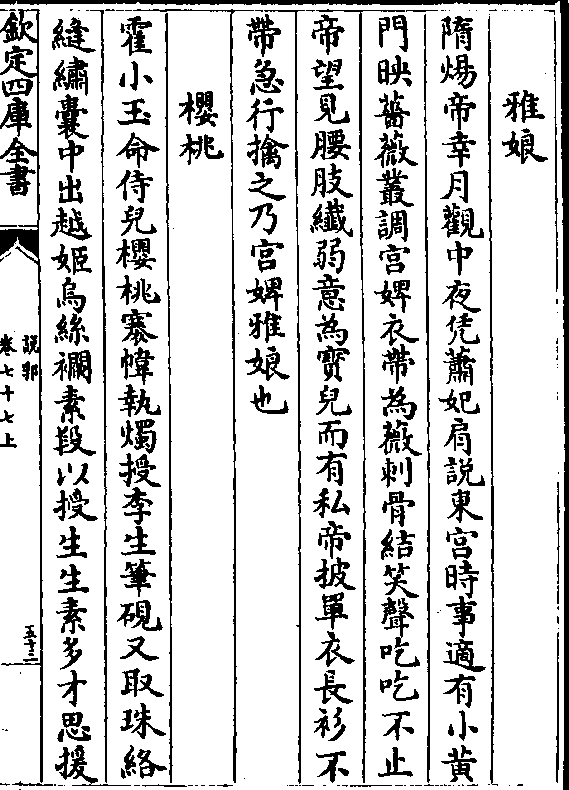 雅娘
隋煬帝幸月觀中夜凭蕭妃肩說東宮時事適有小黃
門映薔薇叢調宮婢衣帶為薇刺骨結笑聲吃吃不止
帝望見腰肢纖弱意為寳兒而有私帝披單衣長衫不
帶急行擒之乃宮婢雅娘也
櫻桃
霍小玉命侍兒櫻桃褰幃執燭授李生筆硯又取珠絡
縫繡囊中出越姬烏絲襴素段以授生生素多才思援
欽定四庫全書
說郛
卷七十七上
五十三